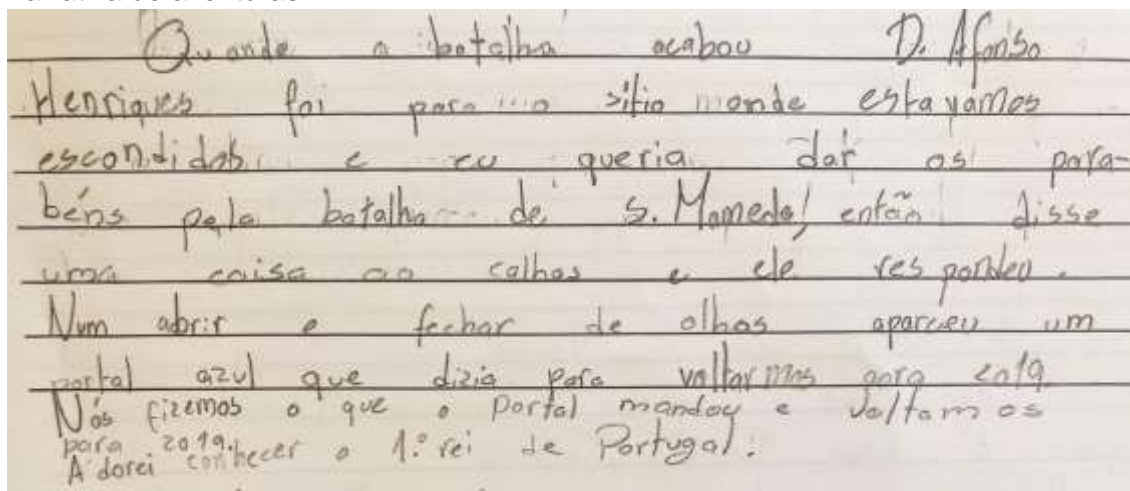 Quande a batalha acabou D. Afonso
Henriques foi para o sítio onde estavamos
escondidos e eu queria dar os para-
béns pela batalha de S. Mamede, então disse
uma coisa ao calhas e ele respondeu.
Num abrir e fechar de olhos apareceu um
portal azul que dizia para voltarmos para 2019.
Nós fizemos o que o portal mandou e voltamos
para 2019.
Adorei conhecer o 1.º rei de Portugal.